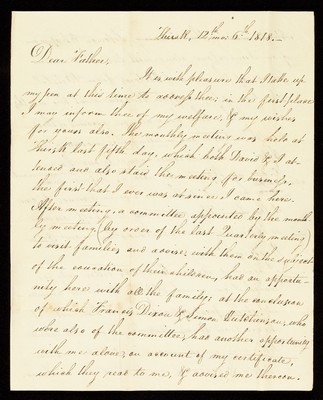 Thirsk, 12th mo 6th 1818.—
Dear Father,
It is with pleasure that I take up
my pen at this time to address thee; in the first place
I may inform thee of my welfare, & my wishes
for yours also. The monthly meeting was held at
Thirsk last fifth day, which both David & I at-
tended and also staid the meeting for business,
the first that I ever was at since I came here.
After meeting, a committee appointed by the month-
ly meeting (by order of the last Quarterly meeting)
to visit families and advise with them on the subject
of the education of their children, had an opportu-
nity here with all the family; at the conclusion
of which Francis Dixon & Simon Hutchinson, who
were also of the committee, had another opportunity
with me alone, on account of my certificate,
which they read to me, & advised me thereon.